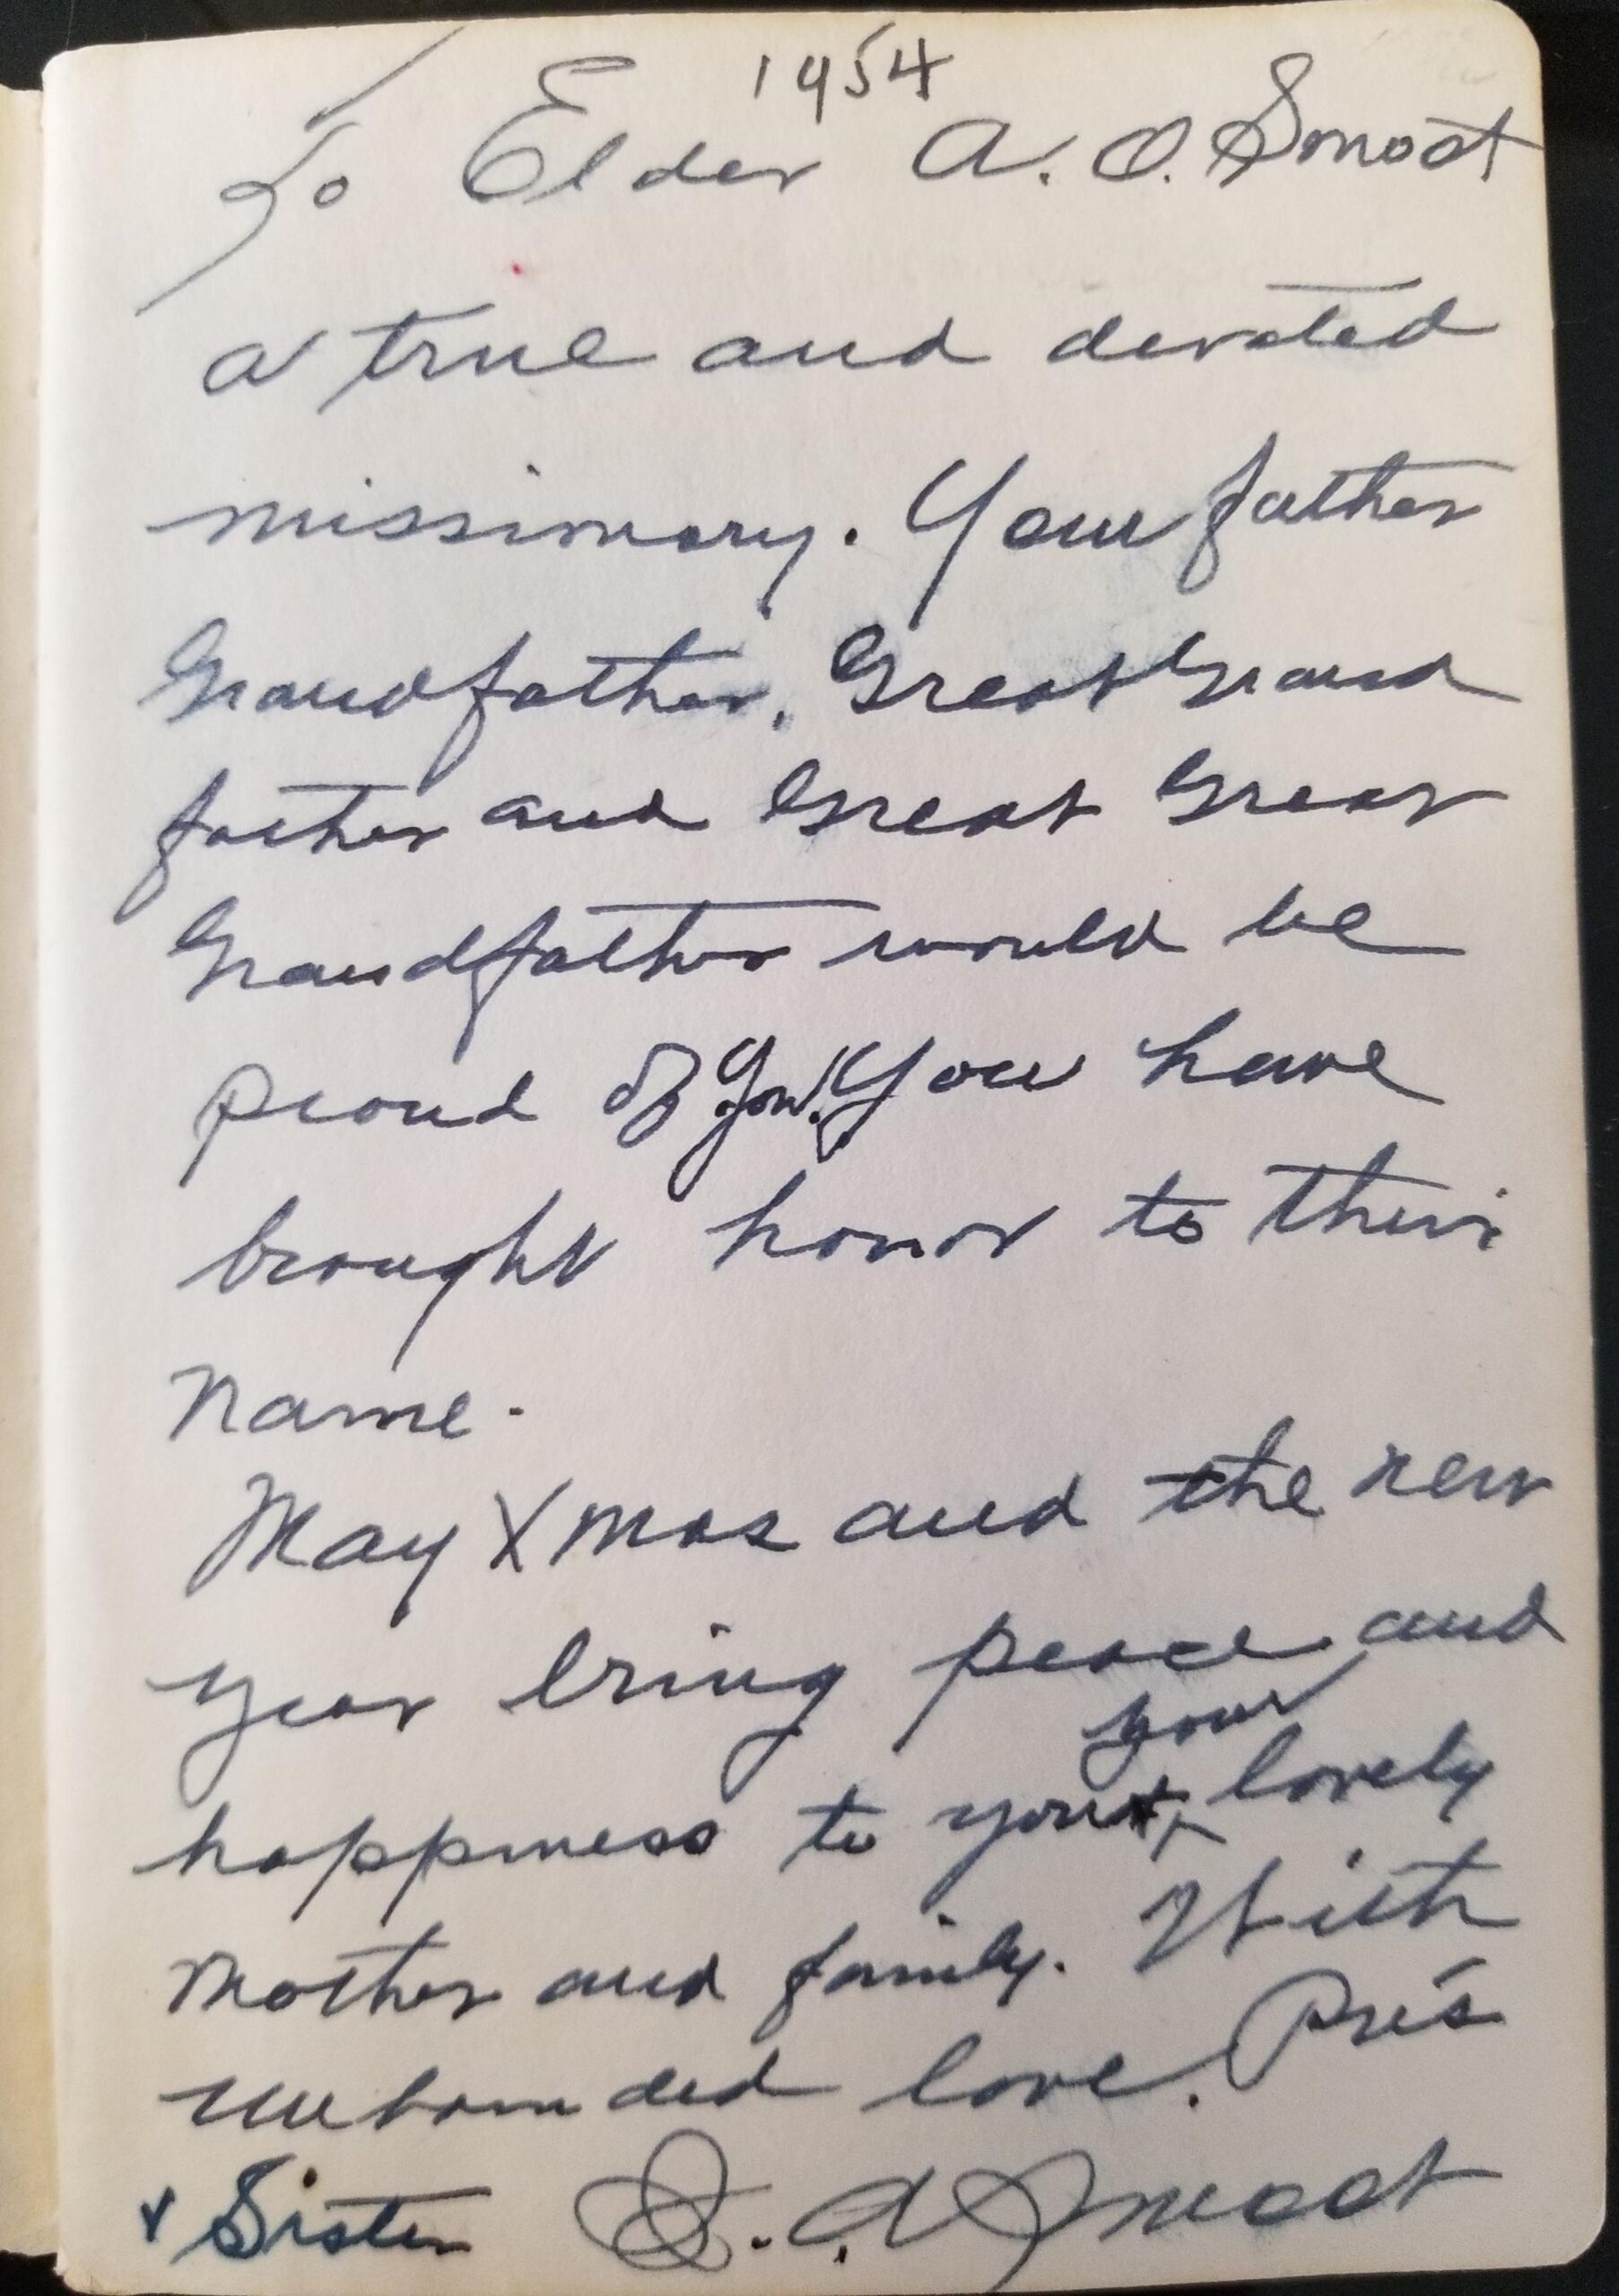 1954
To Elder A. O. Smoot
a true and devoted
missionary. Your father
Grandfather, Great Grand
father and Great Great
Grandfather would be
proud of you. You have
brought honor to their
name.
May Xmas and the new
year bring peace and
your
happiness to you + lovely
Mother and family. With
unbounded love. Pres
+ Sister I. A Smoot